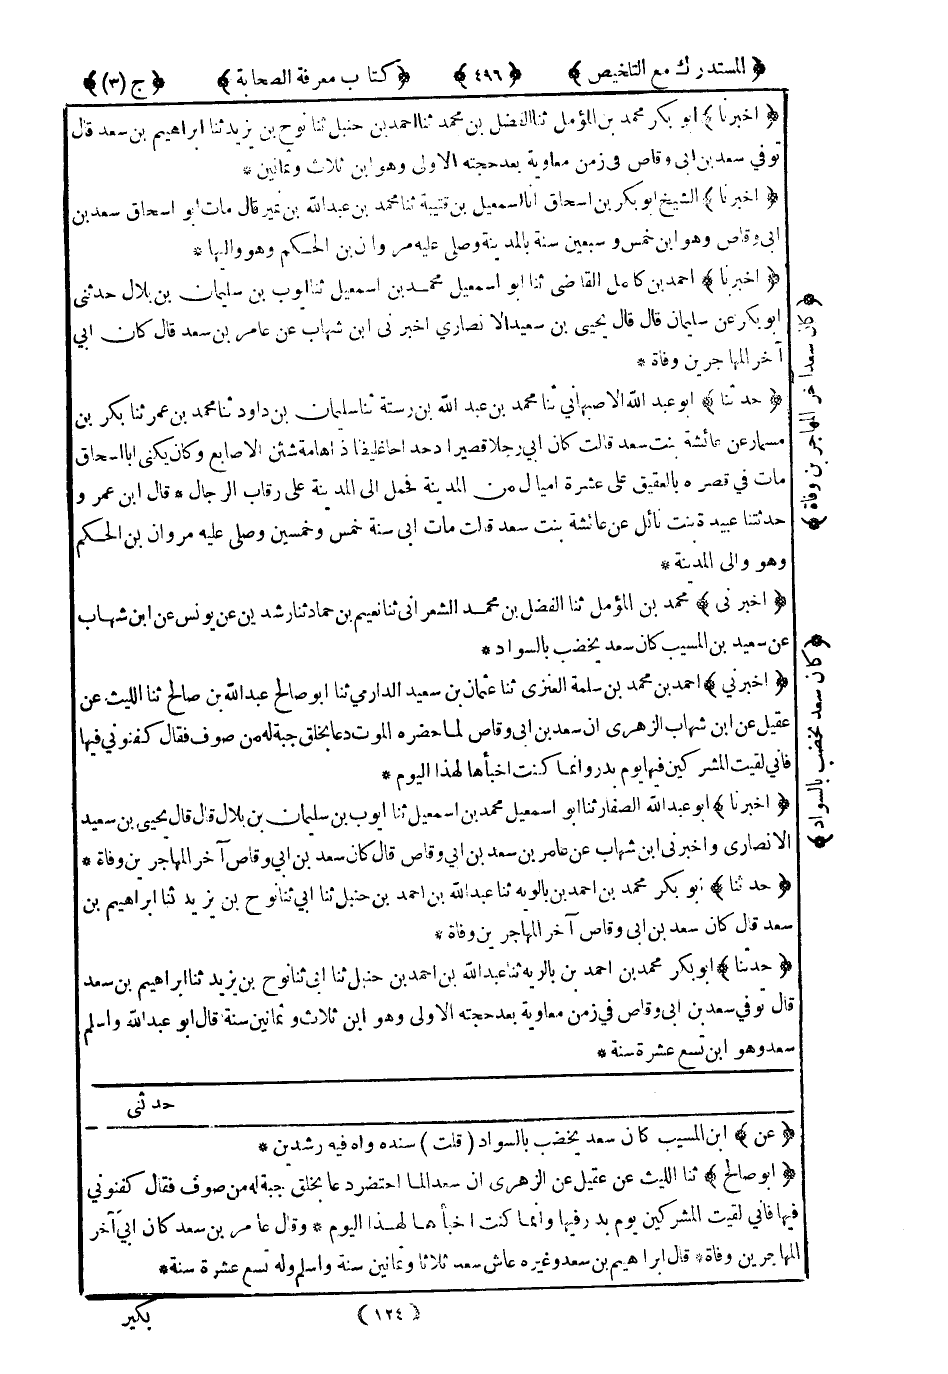 ﴿ المستدرك مع التلخيص ﴾ ﴿ ٤٩٦ ﴾ ﴿ كتاب معرفة الصحابة ﴾ ﴿ ج (٣) ﴾
﴿ اخبرنا ﴾ ابو بكر محمد بن المؤمل ثنا الفضل بن محمد ثنا احمد بن حنبل ثنا نوح بن يزيد ثنا ابراهيم بن سعد قال
توفي سعد بن ابى وقاص فى زمن معاوية بعد حجته الاولى وهو ابن ثلاث وثمانين *
﴿ اخبرنا ﴾ الشيخ ابو بكر بن اسحاق انا اسمعيل بن قتيبة ثنا محمد بن عبد الله بن نمير قال مات ابو اسحاق سعد بن
ابى وقاص وهو ابن خمس و سبعين سنة بالمدينة وصلى عليه مروان بن الحكم وهو واليها *
﴿ اخبرنا ﴾ احمد بن كامل القاضى ثنا ابو اسمعيل محمد بن اسمعيل ثنا ايوب بن سليمان بن بلال حدثنى
ابو بكر عن سليمان قال قال يحيى بن سعيد الانصاري اخبرنى ابن شهاب عن عامر بن سعد قال كان ابي
آخر المهاجرين وفاة *
﴿ حدثنا ﴾ ابو عبد الله الاصبهاني ثنا محمد بن عبد الله بن رستة ثنا سليمان بن داود ثنا محمد بن عمر ثنا بكر بن
مسمار عن عائشة بنت سعد قالت كان ابي رجلا قصيرا دحداحا غليظا ذا هامة شثن الاصابع وكان يكنى ابا اسحاق
مات في قصره بالعقيق على عشرة اميال من المدينة فحمل الى المدينة على رقاب الرجال * قال ابن عمر و
حدثتنا عبيدة بنت نائل عن عائشة بنت سعد قالت مات ابى سنة خمس وخمسين وصلى عليه مروان بن الحكم
وهو والى المدينة *
﴿ اخبرنى ﴾ محمد بن المؤمل ثنا الفضل بن محمد الشعرانى ثنا نعيم بن حماد ثنا رشدين عن يونس عن ابن شهاب
عن سعيد بن المسيب كان سعد يخضب بالسواد *
﴿ اخبرني ﴾ احمد بن محمد بن سلمة العنزى ثنا عثمان بن سعيد الدارمي ثنا ابو صالح عبد الله بن صالح ثنا الليث عن
عقيل عن ابن شهاب الزهرى ان سعد بن ابى وقاص لما حضره الموت دعا بخلق جبة له من صوف فقال كفنوني فيها
فاني لقيت المشركين فيها يوم بدر وانما كنت اخبأها لهذا اليوم *
﴿ اخبرنا ﴾ ابو عبد الله الصفار ثنا ابو اسمعيل محمد بن اسمعيل ثنا ايوب بن سليمان بن بلال قال قال يحيى بن سعيد
الانصارى واخبرنى ابن شهاب عن عامر بن سعد بن ابي وقاص قال كان سعد بن ابي وقاص آخر المهاجرين وفاة *
﴿ حدثنا ﴾ ابو بكر محمد بن احمد بن بالويه ثنا عبد الله بن احمد بن حنبل ثنا ابي ثنا نوح بن يزيد ثنا ابراهيم بن
سعد قال كان سعد بن ابى وقاص آخر المهاجرين وفاة *
﴿ حدثنا ﴾ ابو بكر محمد بن احمد بن بالويه ثنا عبد الله بن احمد بن حنبل ثنا ابى ثنا نوح بن يزيد ثنا ابراهيم بن سعد
قال توفي سعد بن ابى وقاص في زمن معاوية بعد حجته الاولى وهو ابن ثلاث وثمانين سنة قال ابو عبد الله واسلم
سعد وهو ابن تسع عشرة سنة *
حدثنى
﴿ عن ﴾ ابن المسيب كان سعد يخضب بالسواد ( قلت ) سنده واه فيه رشدين *
﴿ ابو صالح ﴾ ثنا الليث عن عقيل عن الزهرى ان سعدا لما احتضر دعا بخلق جبة له من صوف فقال كفنوني
فيها فاني لقيت المشركين يوم بدر فيها وانما كنت اخبأها لهذا اليوم * وقال عامر بن سعد كان ابي آخر
المهاجرين وفاة * قال ابراهيم بن سعد وغيره عاش سعد ثلاثا وثمانين سنة واسلم وله تسع عشرة سنة *
(١٢٤)
بكير
﴿ كان سعد آخر المهاجرين وفاة ﴾
﴿ كان سعد يخضب بالسواد ﴾